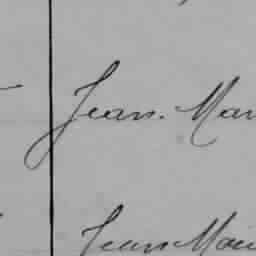 Jean. Mar
Jean Mari